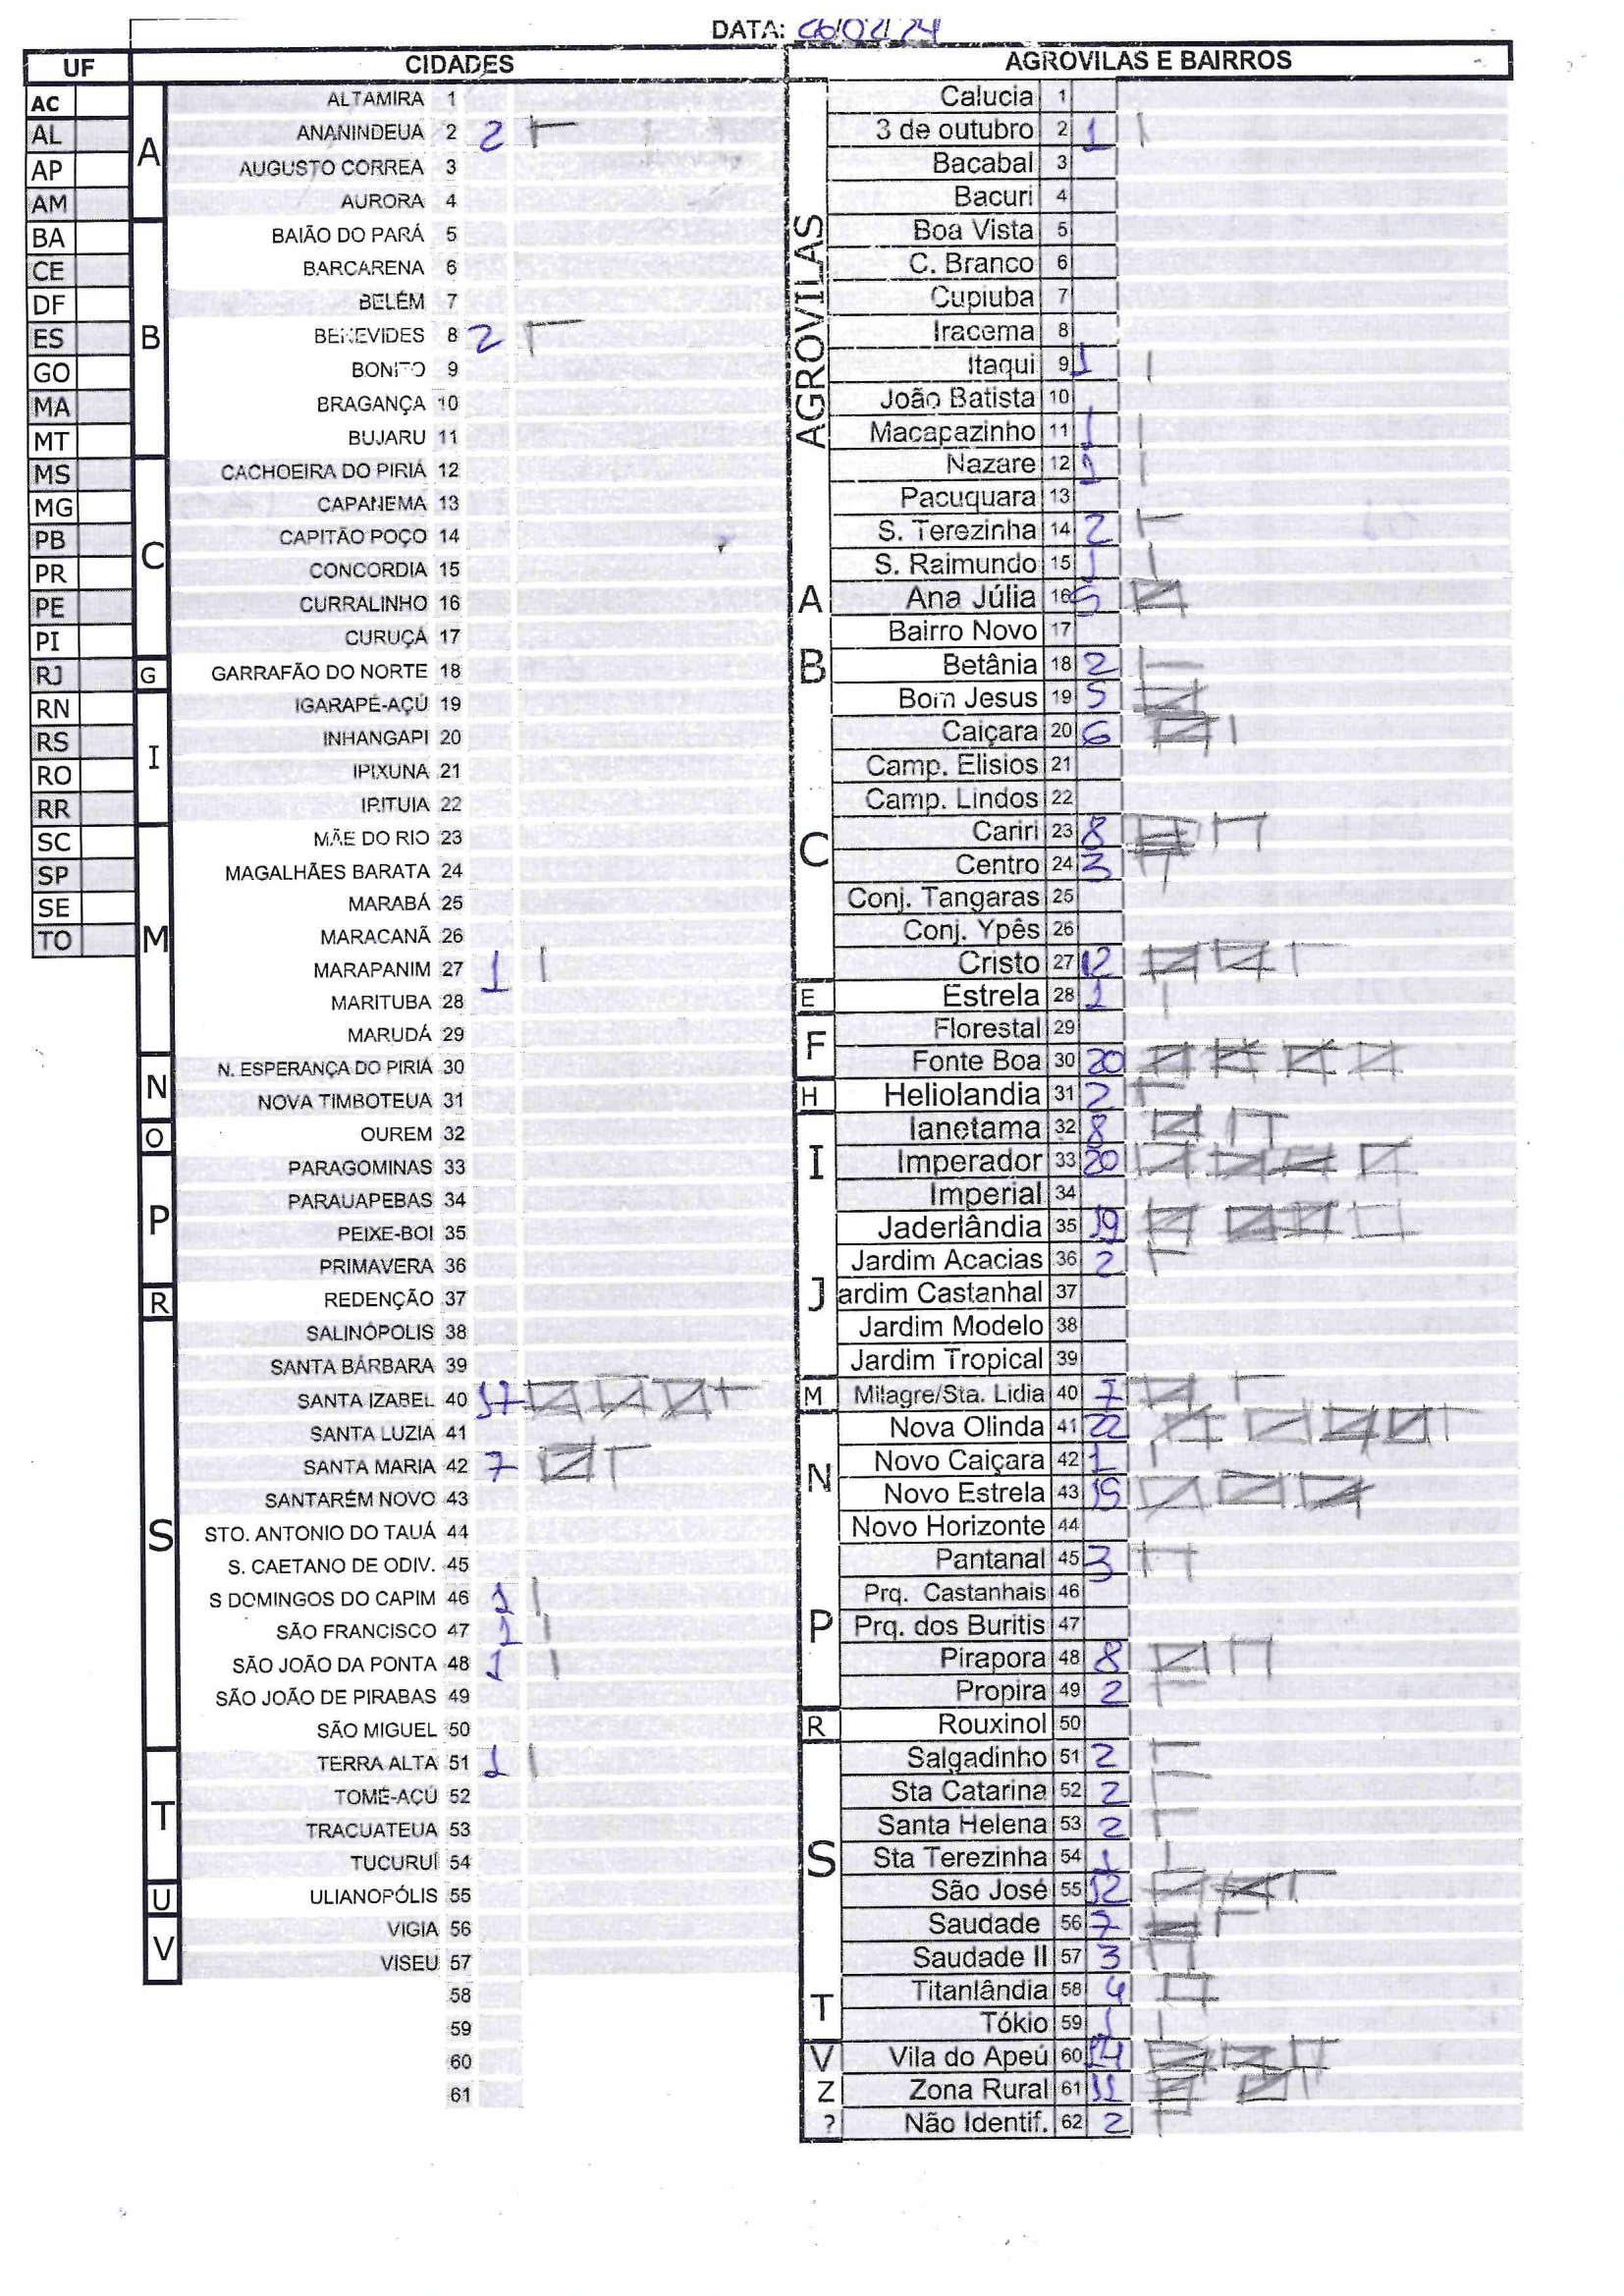 DATA: 06/02/24
UF CIDADES AGROVILAS E BAIRROS
AC
AL
AP
AM
BA
CE
DF
ES
GO
MA
MT
MS
MG
PB
PR
PE
PI
RJ
RN
RS
RO
RR
SC
SP
SE
TO
A
ALTAMIRA 1
ANANINDEUA 2 2
AUGUSTO CORREA 3
AURORA 4
B
BAIÃO DO PARÁ 5
BARCARENA 6
BELÉM 7
BENEVIDES 8 2
BONITO 9
BRAGANÇA 10
BUJARU 11
C
CACHOEIRA DO PIRIÁ 12
CAPANEMA 13
CAPITÃO POÇO 14
CONCORDIA 15
CURRALINHO 16
CURUÇÁ 17
G
GARRAFÃO DO NORTE 18
I
IGARAPÉ-AÇÚ 19
INHANGAPI 20
IPIXUNA 21
IRITUIA 22
M
MÃE DO RIO 23
MAGALHÃES BARATA 24
MARABÁ 25
MARACANÃ 26
MARAPANIM 27 1
MARITUBA 28
MARUDÁ 29
N
N. ESPERANÇA DO PIRIÁ 30
NOVA TIMBOTEUA 31
O
OUREM 32
P
PARAGOMINAS 33
PARAUAPEBAS 34
PEIXE-BOI 35
PRIMAVERA 36
R
REDENÇÃO 37
S
SALINÓPOLIS 38
SANTA BÁRBARA 39
SANTA IZABEL 40 17
SANTA LUZIA 41
SANTA MARIA 42 7
SANTARÉM NOVO 43
STO. ANTONIO DO TAUÁ 44
S. CAETANO DE ODIV. 45
S DOMINGOS DO CAPIM 46 1
SÃO FRANCISCO 47 1
SÃO JOÃO DA PONTA 48 1
SÃO JOÃO DE PIRABAS 49
SÃO MIGUEL 50
T
TERRA ALTA 51 1
TOMÉ-AÇÚ 52
TRACUATEUA 53
TUCURUÍ 54
U
ULIANOPÓLIS 55
V
VIGIA 56
VISEU 57
58
59
60
61
AGROVILAS
Calucia 1
3 de outubro 2 1
Bacabal 3
Bacuri 4
Boa Vista 5
C. Branco 6
Cupiuba 7
Iracema 8
Itaqui 9 1
João Batista 10
Macapazinho 11 1
Nazare 12 1
Pacuquara 13
S. Terezinha 14 2
S. Raimundo 15 1
A
Ana Júlia 16 5
B
Bairro Novo 17
Betânia 18 2
Bom Jesus 19 5
C
Caiçara 20 6
Camp. Elisios 21
Camp. Lindos 22
Cariri 23 8
Centro 24 3
Conj. Tangaras 25
Conj. Ypês 26
Cristo 27 12
E
Estrela 28 1
F
Florestal 29
Fonte Boa 30 20
H
Heliolandia 31 2
I
Ianetama 32 8
Imperador 33 20
Imperial 34
J
Jaderlândia 35 19
Jardim Acacias 36 2
ardim Castanhal 37
Jardim Modelo 38
Jardim Tropical 39
M
Milagre/Sta. Lidia 40 7
N
Nova Olinda 41 22
Novo Caiçara 42 1
Novo Estrela 43 15
Novo Horizonte 44
P
Pantanal 45 3
Prq. Castanhais 46
Prq. dos Buritis 47
Pirapora 48 8
Propira 49 2
R
Rouxinol 50
S
Salgadinho 51 2
Sta Catarina 52 2
Santa Helena 53 2
Sta Terezinha 54 1
São José 55 12
Saudade 56 7
Saudade II 57 3
T
Titanlândia 58 4
Tókio 59 1
V
Vila do Apeú 60 14
Z
Zona Rural 61 11
?
Não Identif. 62 2